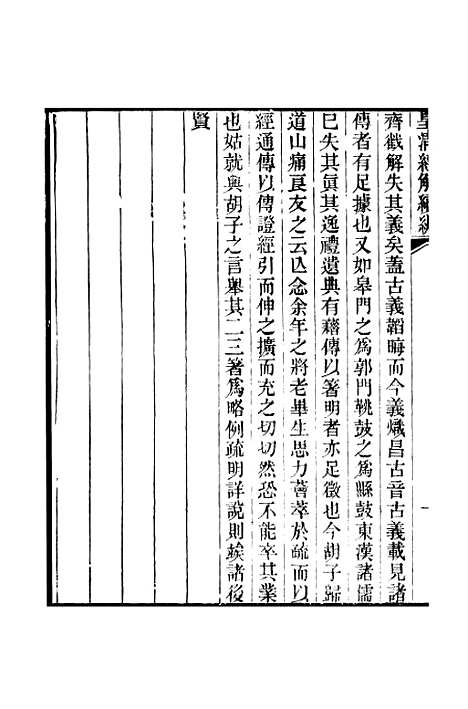 皇清經解續編
齊戳解失其義矣蓋古義韜晦而今義熾昌古音古義載見諸
傳者有足據也又如皋門之爲郭門鞉鼓之爲縣鼓東漢諸儒
已失其眞其逸禮遺典有藉傳以箸明者亦足徵也今胡子歸
道山痛良友之云亾念余年之將老畢生思力薈萃於疏而以
經通傳以傳證經引而伸之擴而充之切切然恐不能卒其業
也姑就與胡子之言舉其二三著爲略例疏明詳說則竢諸後
賢